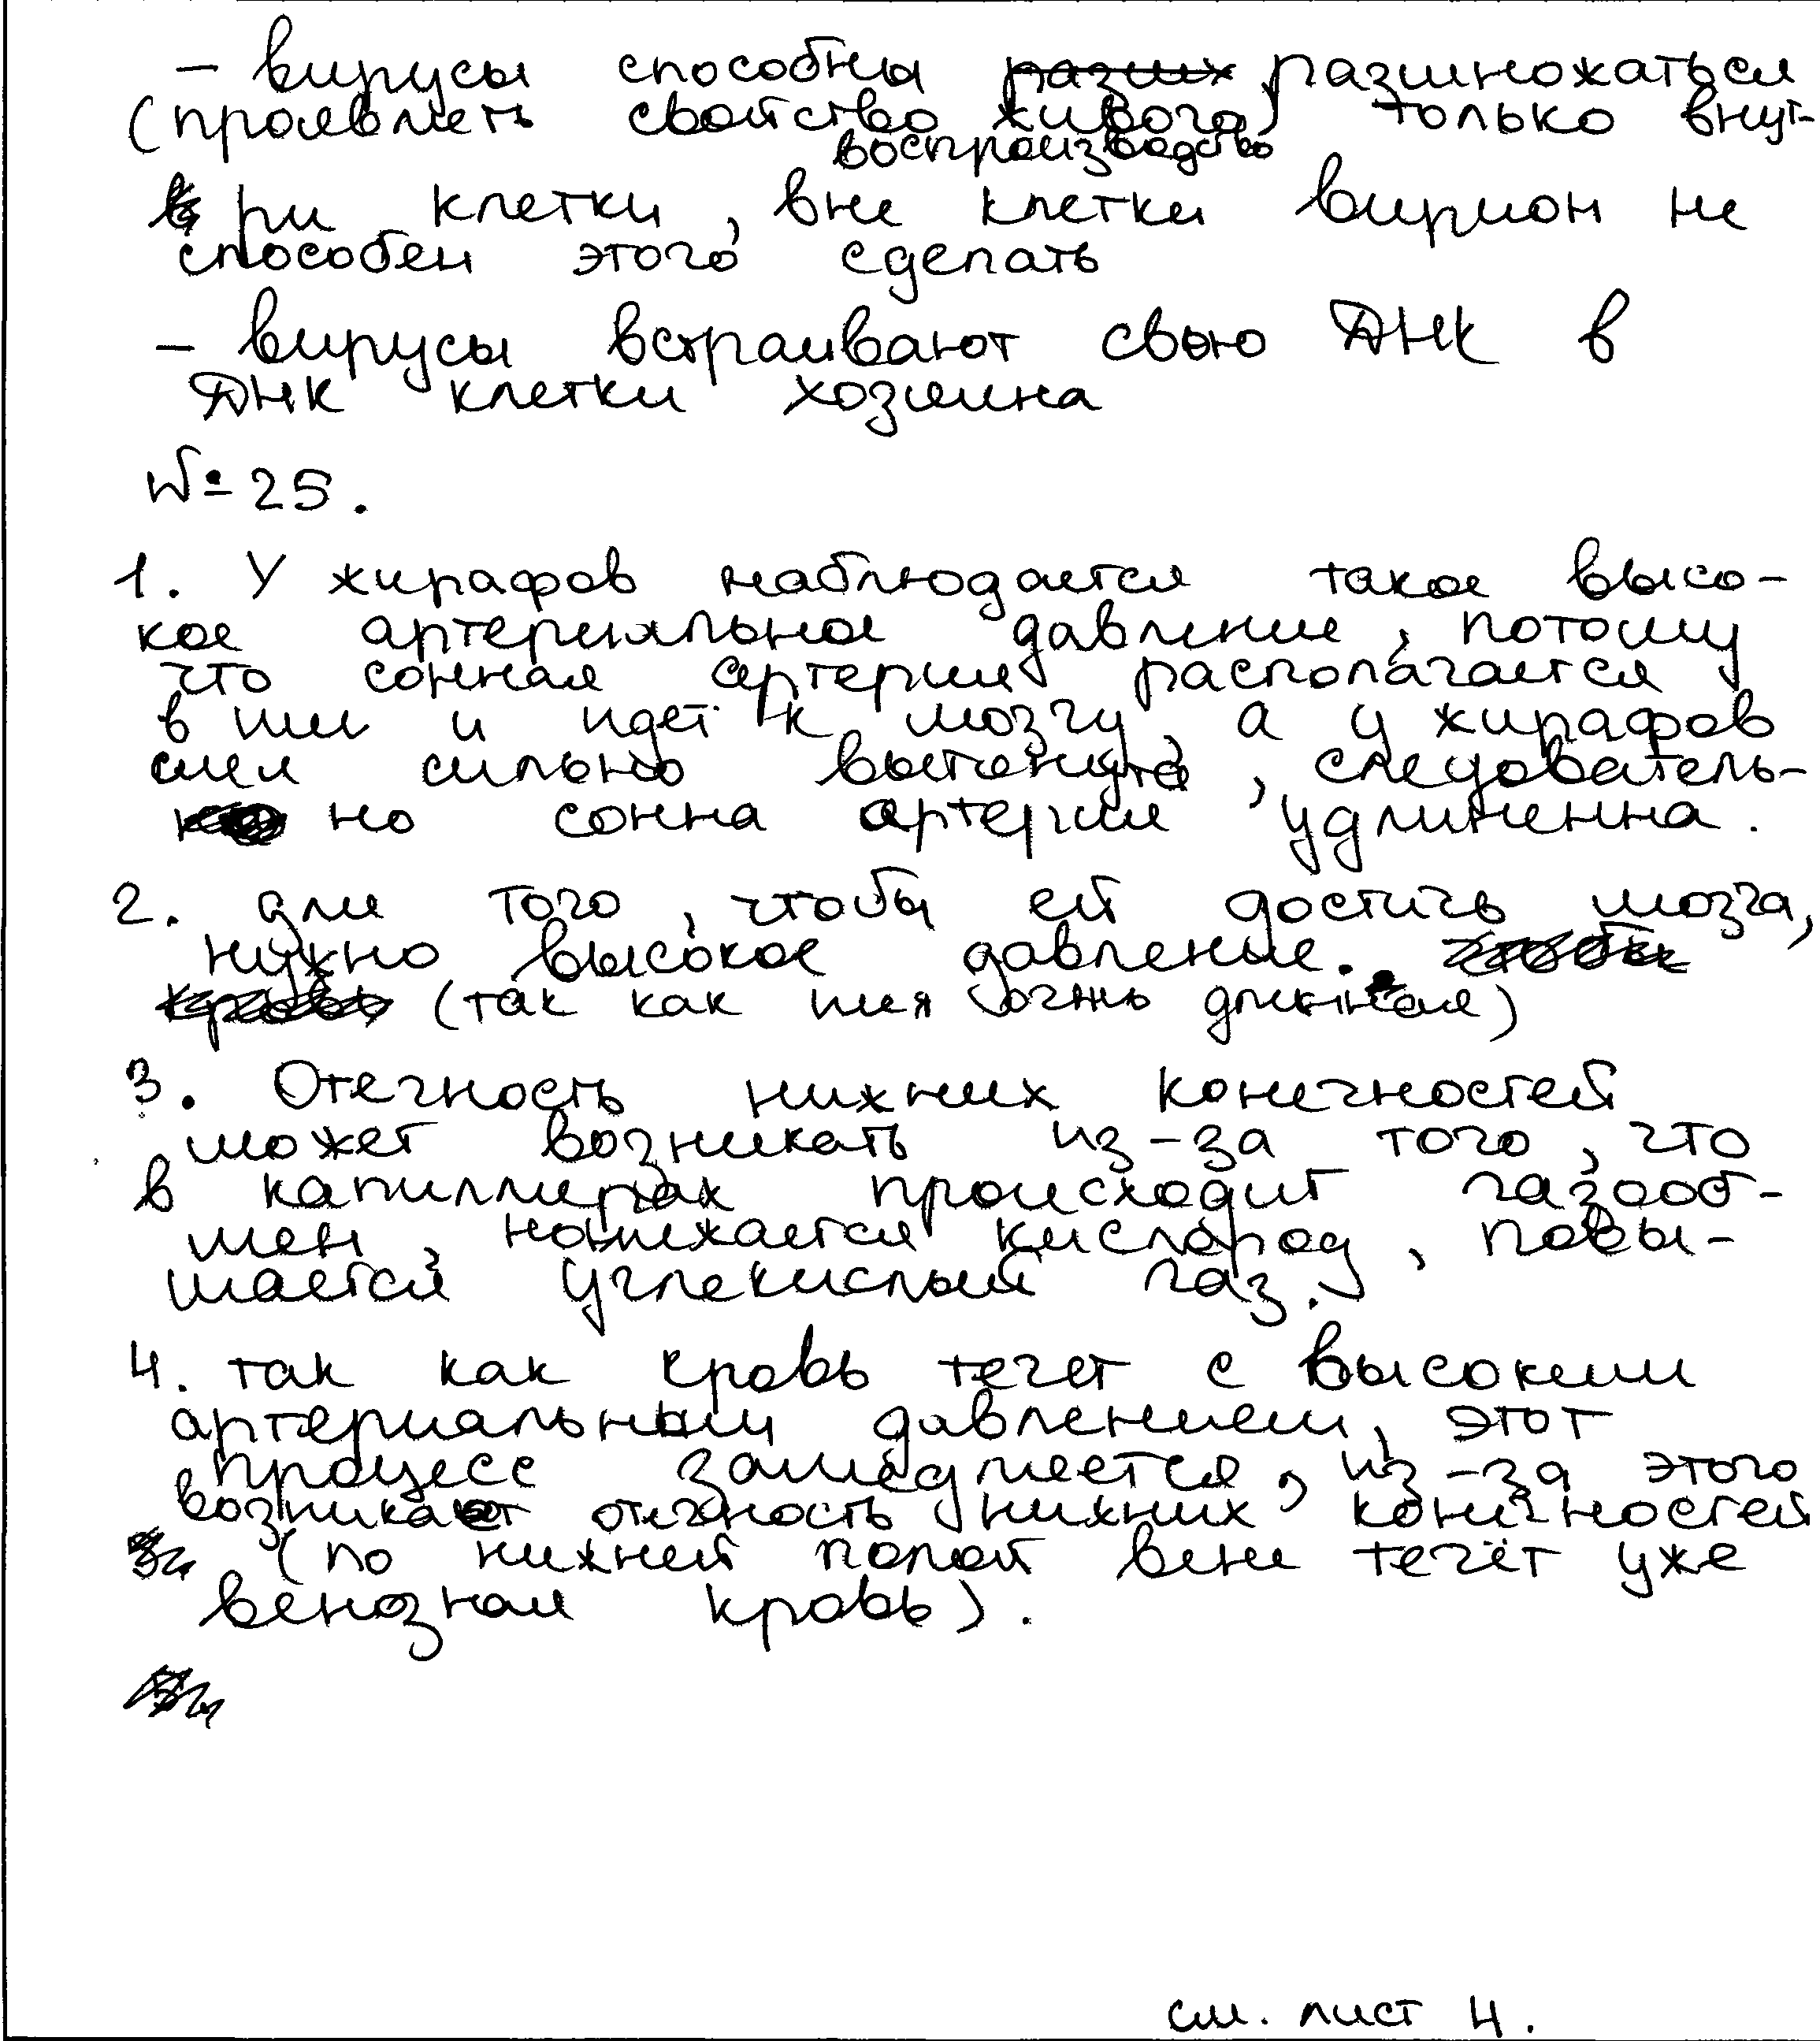 - вирусы способны размн размножаться
(проявлять свойство живого) только внут-
воспроизводство
ри клетки, вне клетки вирион не
способен этого сделать
- вирусы встраивают свою ДНК в
ДНК клетки хозяина
№ 25.
1. У жирафов наблюдается такое высо-
кое артериальное давление, потому
что сонная артерия располагается
в шеи и идет к мозгу, а у жирафов
шея сильно вытянута, следователь-
но сонна артерия удлиненна.
2. для того, чтобы ей достичь мозга,
нужно высокое давление.
(так как шея очнь длинная)
3. Отечность нижних конечностей
может возникать из-за того, что
в капиллярах происходит газооб-
мен, понижается кислород, повы-
шается углекислый газ.
4. так как кровь течет с высоким
артериальным давлением, этот
процесс замедляется, из-за этого
возникает отечность нижних конечностей
(по нижней полой вене течёт уже
венозная кровь).
см. лист 4.